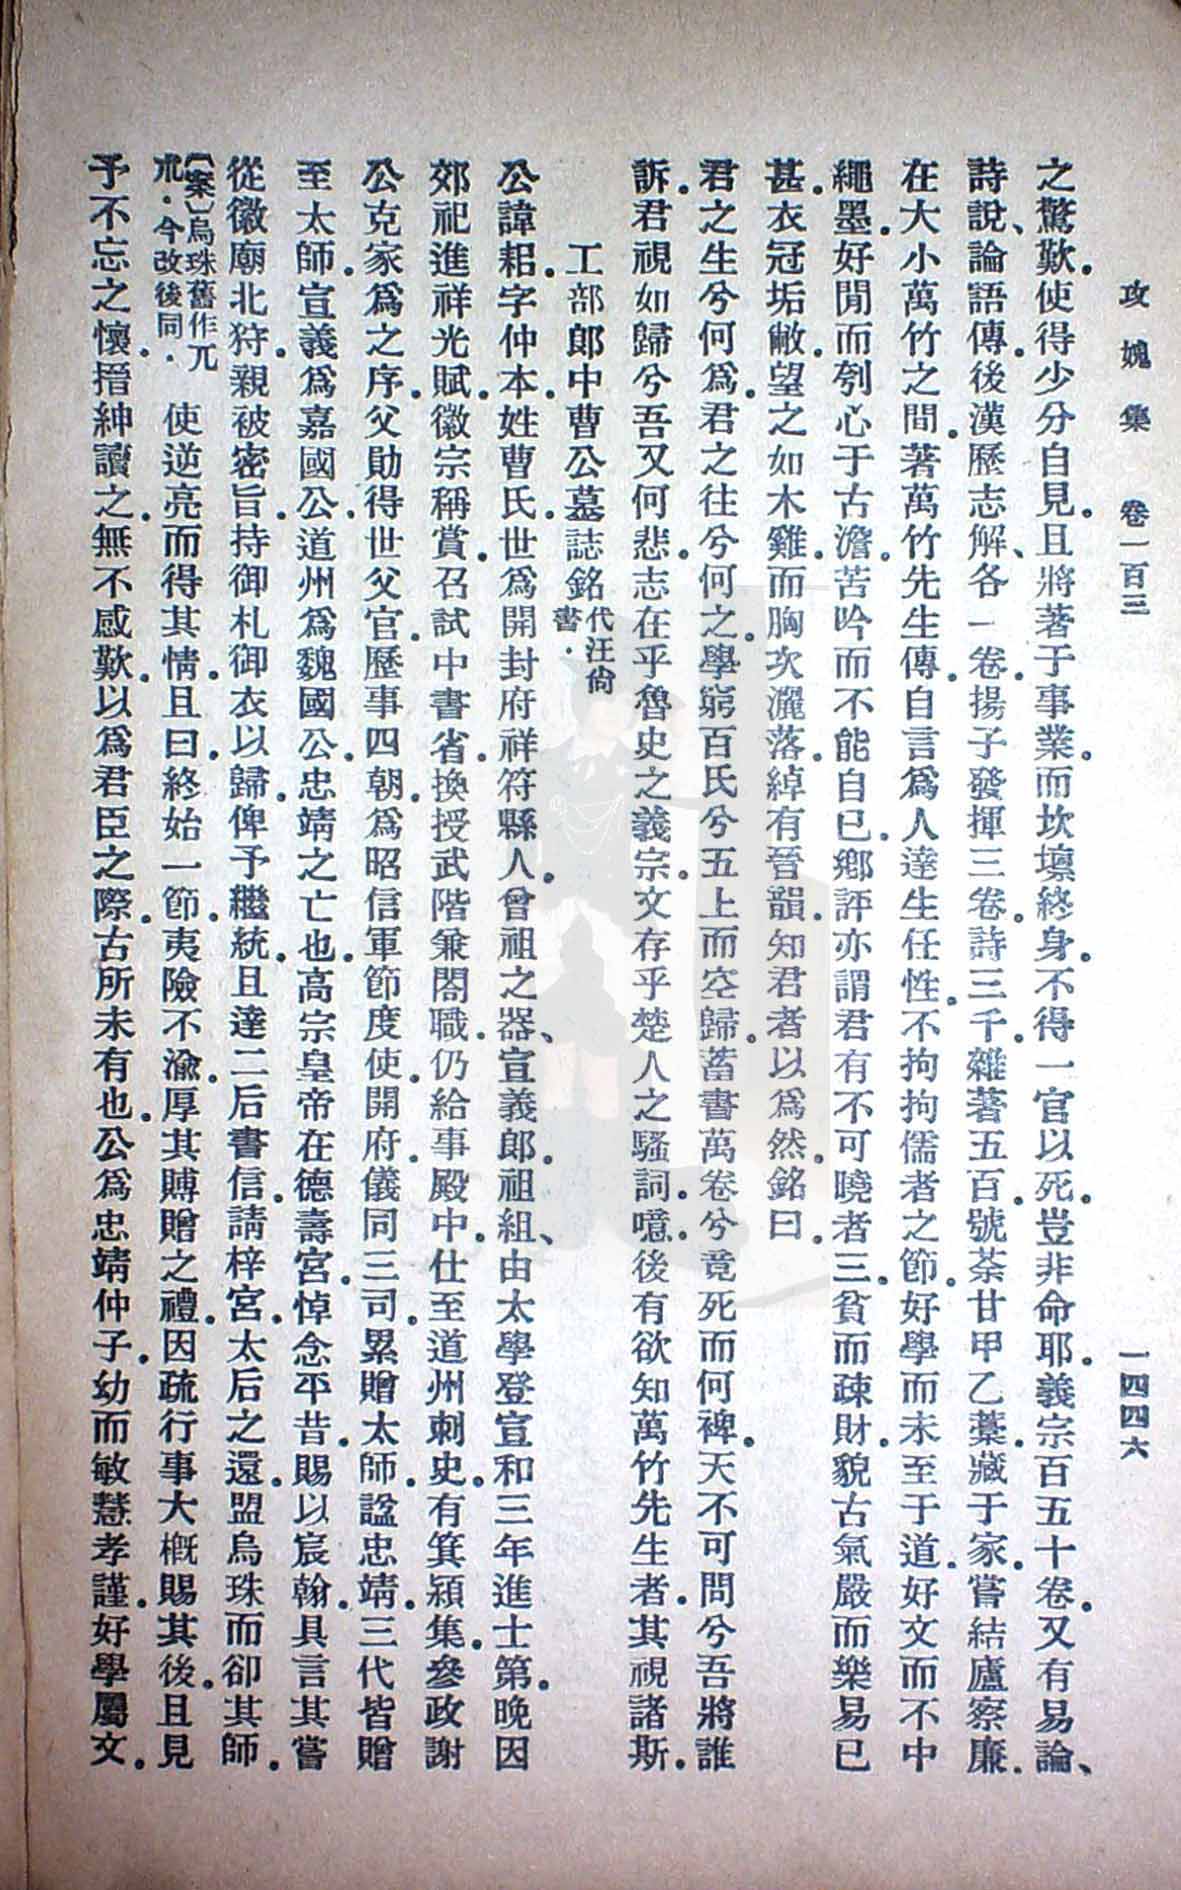 攻媿集　卷一百三　一四四六
之驚歎。使得少分自見。且將著于事業。而坎壈終身。不得一官以死。豈非命耶。義宗百五十卷。又有易論、
詩說、論語傳。後漢歷志解、各一卷。揚子發揮三卷。詩三千。雜著五百。號荼甘甲乙藁。藏于家。嘗結廬察廉。
在大小萬竹之間。著萬竹先生傳。自言爲人達生任性。不拘拘儒者之節。好學而未至于道。好文而不中
繩墨。好閒而刳心于古澹。苦吟而不能自已。鄉評亦謂君有不可曉者三。貧而疎財。貌古氣嚴而樂易已
甚。衣冠垢敝。望之如木雞。而胸次灑落。綽有晉韻。知君者以爲然。銘曰。
君之生兮何爲。君之往兮何之。學窮百氏兮五上而空歸。蓄書萬卷兮竟死而何裨。天不可問兮吾將誰
訴。君視如歸兮吾又何悲。志在乎魯史之義宗。文存乎楚人之騷詞。噫。後有欲知萬竹先生者。其視諸斯。
工部郎中曹公墓誌銘代汪尙書．
公諱耜。字仲本。姓曹氏。世爲開封府祥符縣人。曾祖之器、宣義郎。祖組、由太學登宣和三年進士第。晚因
郊祀進祥光賦。徽宗稱賞。召試中書省。換授武階兼閤職。仍給事殿中。仕至道州刺史。有箕潁集。參政謝
公克家爲之序。父勛得世父官。歷事四朝。爲昭信軍節度使。開府儀同三司。累贈太師。諡忠靖。三代皆贈
至太師。宣義爲嘉國公。道州爲魏國公。忠靖之亡也。高宗皇帝在德壽宮。悼念平昔。賜以宸翰。具言其嘗
從徽廟北狩。親被密旨。持御札御衣以歸。俾予繼統。且達二后書信。請梓宮。太后之還。盟烏珠而卻其師。
〔案〕烏珠舊作兀朮．今改後同．使逆亮而得其情。且曰。終始一節。夷險不渝。厚其賻贈之禮。因疏行事大概。賜其後。且見
予不忘之懷。搢紳讀之。無不感歎。以爲君臣之際。古所未有也。公爲忠靖仲子。幼而敏慧孝謹。好學屬文。